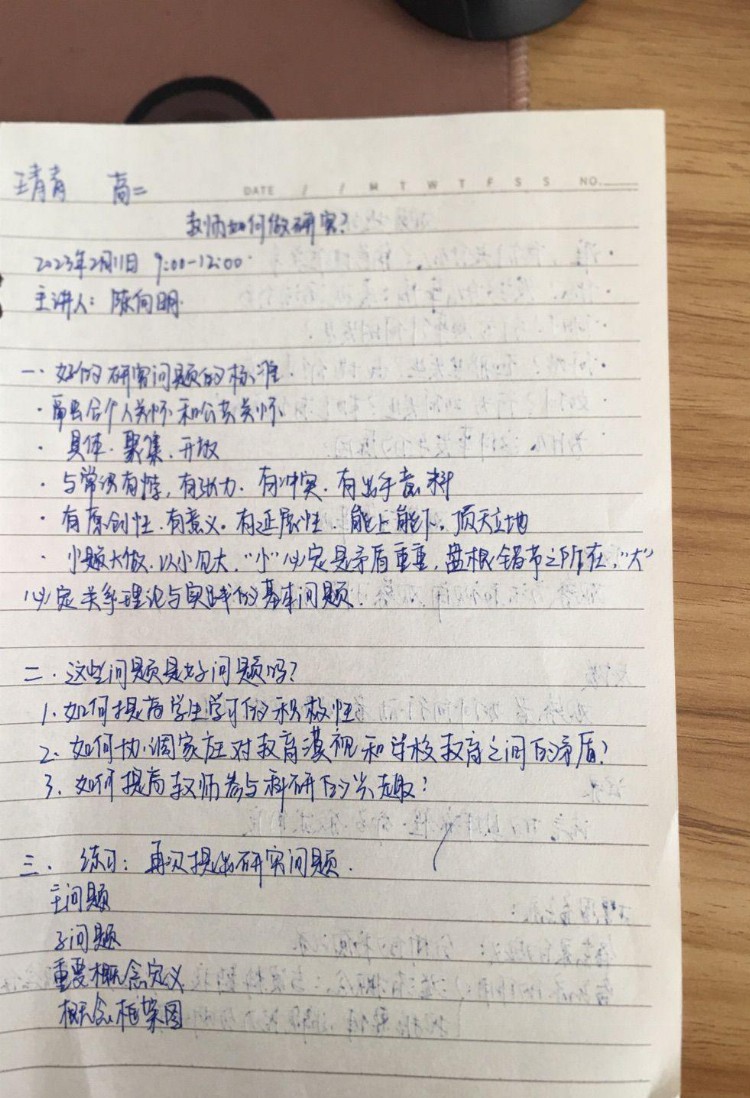 王青青 高二
DATE / / M T W T F S S NO.
教师如何做研究?
2023年2月11日 9:00-12:00
主讲人: 陈向明
一. 好的研究问题的标准
· 需结合个人关怀和公共关怀
· 具体、聚集、开放
· 与常识有悖, 有张力. 有冲突. 有出乎意料
· 有原创性. 有意义. 有延展性. 能上能下. 顶天立地
· 小题大做. 以小见大. “小”必定是矛盾重重, 盘根错节之所在, “大”
必定关乎理论与实践的基本问题.
二. 这些问题是好问题吗?
1. 如何提高学生学习的积极性
2. 如何协调家庭对教育漠视和学校教育之间的矛盾?
3. 如何提高教师参与科研的兴趣?
三. 练习: 再次提出研究问题.
主问题
子问题
重要概念定义
概念框架图